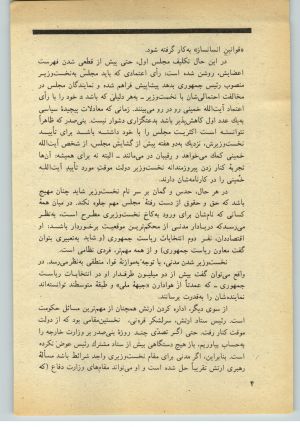 «قوانین انسانساز» به‌کار گرفته شود.
در این حال تکلیف مجلس اول، حتی پیش از قطعی شدن فهرست
اعضایش، روشن شده است، رأی اعتمادی که باید مجلس به‌نخست‌وزیر
منصوب رئیس جمهوری بدهد پیشاپیش فراهم شده و نمایندگان مجلس در
مخالفت احتمالی‌شان با نخست‌وزیر ـ به‌هر دلیلی که باشد ـ خود را با رأی
اعتماد آیت‌الله خمینی رو در رو می‌بینند. زمانی که معادلات پیچیدهٔ سیاسی
به‌یک عدد اول کاهش‌پذیر باشد بدعتگزاری دشوار نیست. بنی‌صدر که ظاهراً
نتوانسته است اکثریت مجلس را با خود داشته باشد برای تأیید
نخست‌وزیرش، نزدیک به‌دو هفته پیش از گشایش مجلس، از شخص آیت‌الله
خمینی کمک می‌خواهد و رقیبان در می‌مانند ـ البته نه برای همیشه. آن‌ها
تجربهٔ کنار زدن پیروزمندانه نخست‌وزیر دولت موقت مورد تأیید آیت‌الله
خمینی را در کارنامه‌شان دارند.
در هر حال، حدس و گمان بر سر نام نخست‌وزیر شاید چنان مهیج
باشد که حق و حقوق از دست رفتهٔ مجلس مهم جلوه نکند. در میان همهٔ
کسانی که نام‌شان برای ورود به‌کاخ نخست‌وزیری مطرح است، به‌نظر
می‌رسد که دریادار مدنی از محکم‌ترین موقعیت برخوردار باشد: او
اقتصاددان، نفر دوم انتخابات ریاست جمهوری (و شاید به‌تعبیری بتوان
گفت معاون ریاست جمهوری) و از همه مهم‌تر، فردی نظامی است.
نخست‌وزیر شدن مدنی، با توجه به‌موازنهٔ قوا، منطقی به‌نظر می‌رسد. در
واقع می‌توان گفت بیش از دو میلیون طرفدار او در انتخابات ریاست
جمهوری ـ که عمدتاً از هواداران «جبههٔ ملی» و طبقهٔ متوسطند توانسته‌اند
نماینده‌شان را به‌قدرت برسانند.
از سوی دیگر، اداره کردن ارتش همچنان از مهم‌ترین مسائل حکومت
است. رئیس ستاد ارتش، سرلشگر قرنی، نخستین مقامی بود که از دولت
موقت کنار رفت. حتی اگر تصدّی چند روزهٔ بنی‌صدر بر وزارت خارجه را
به‌حساب بیاوریم، باز هیچ دستگاهی بیش از ستاد مشترک رئیس عوض نکرده
است. بنابراین، اگر مدنی برای مقام نخست‌وزیری واجد شرائط باشد مسألهٔ
رهبری ارتش تقریباً حل شده است و او می‌تواند مقام‌های وزارت دفاع (که
۴